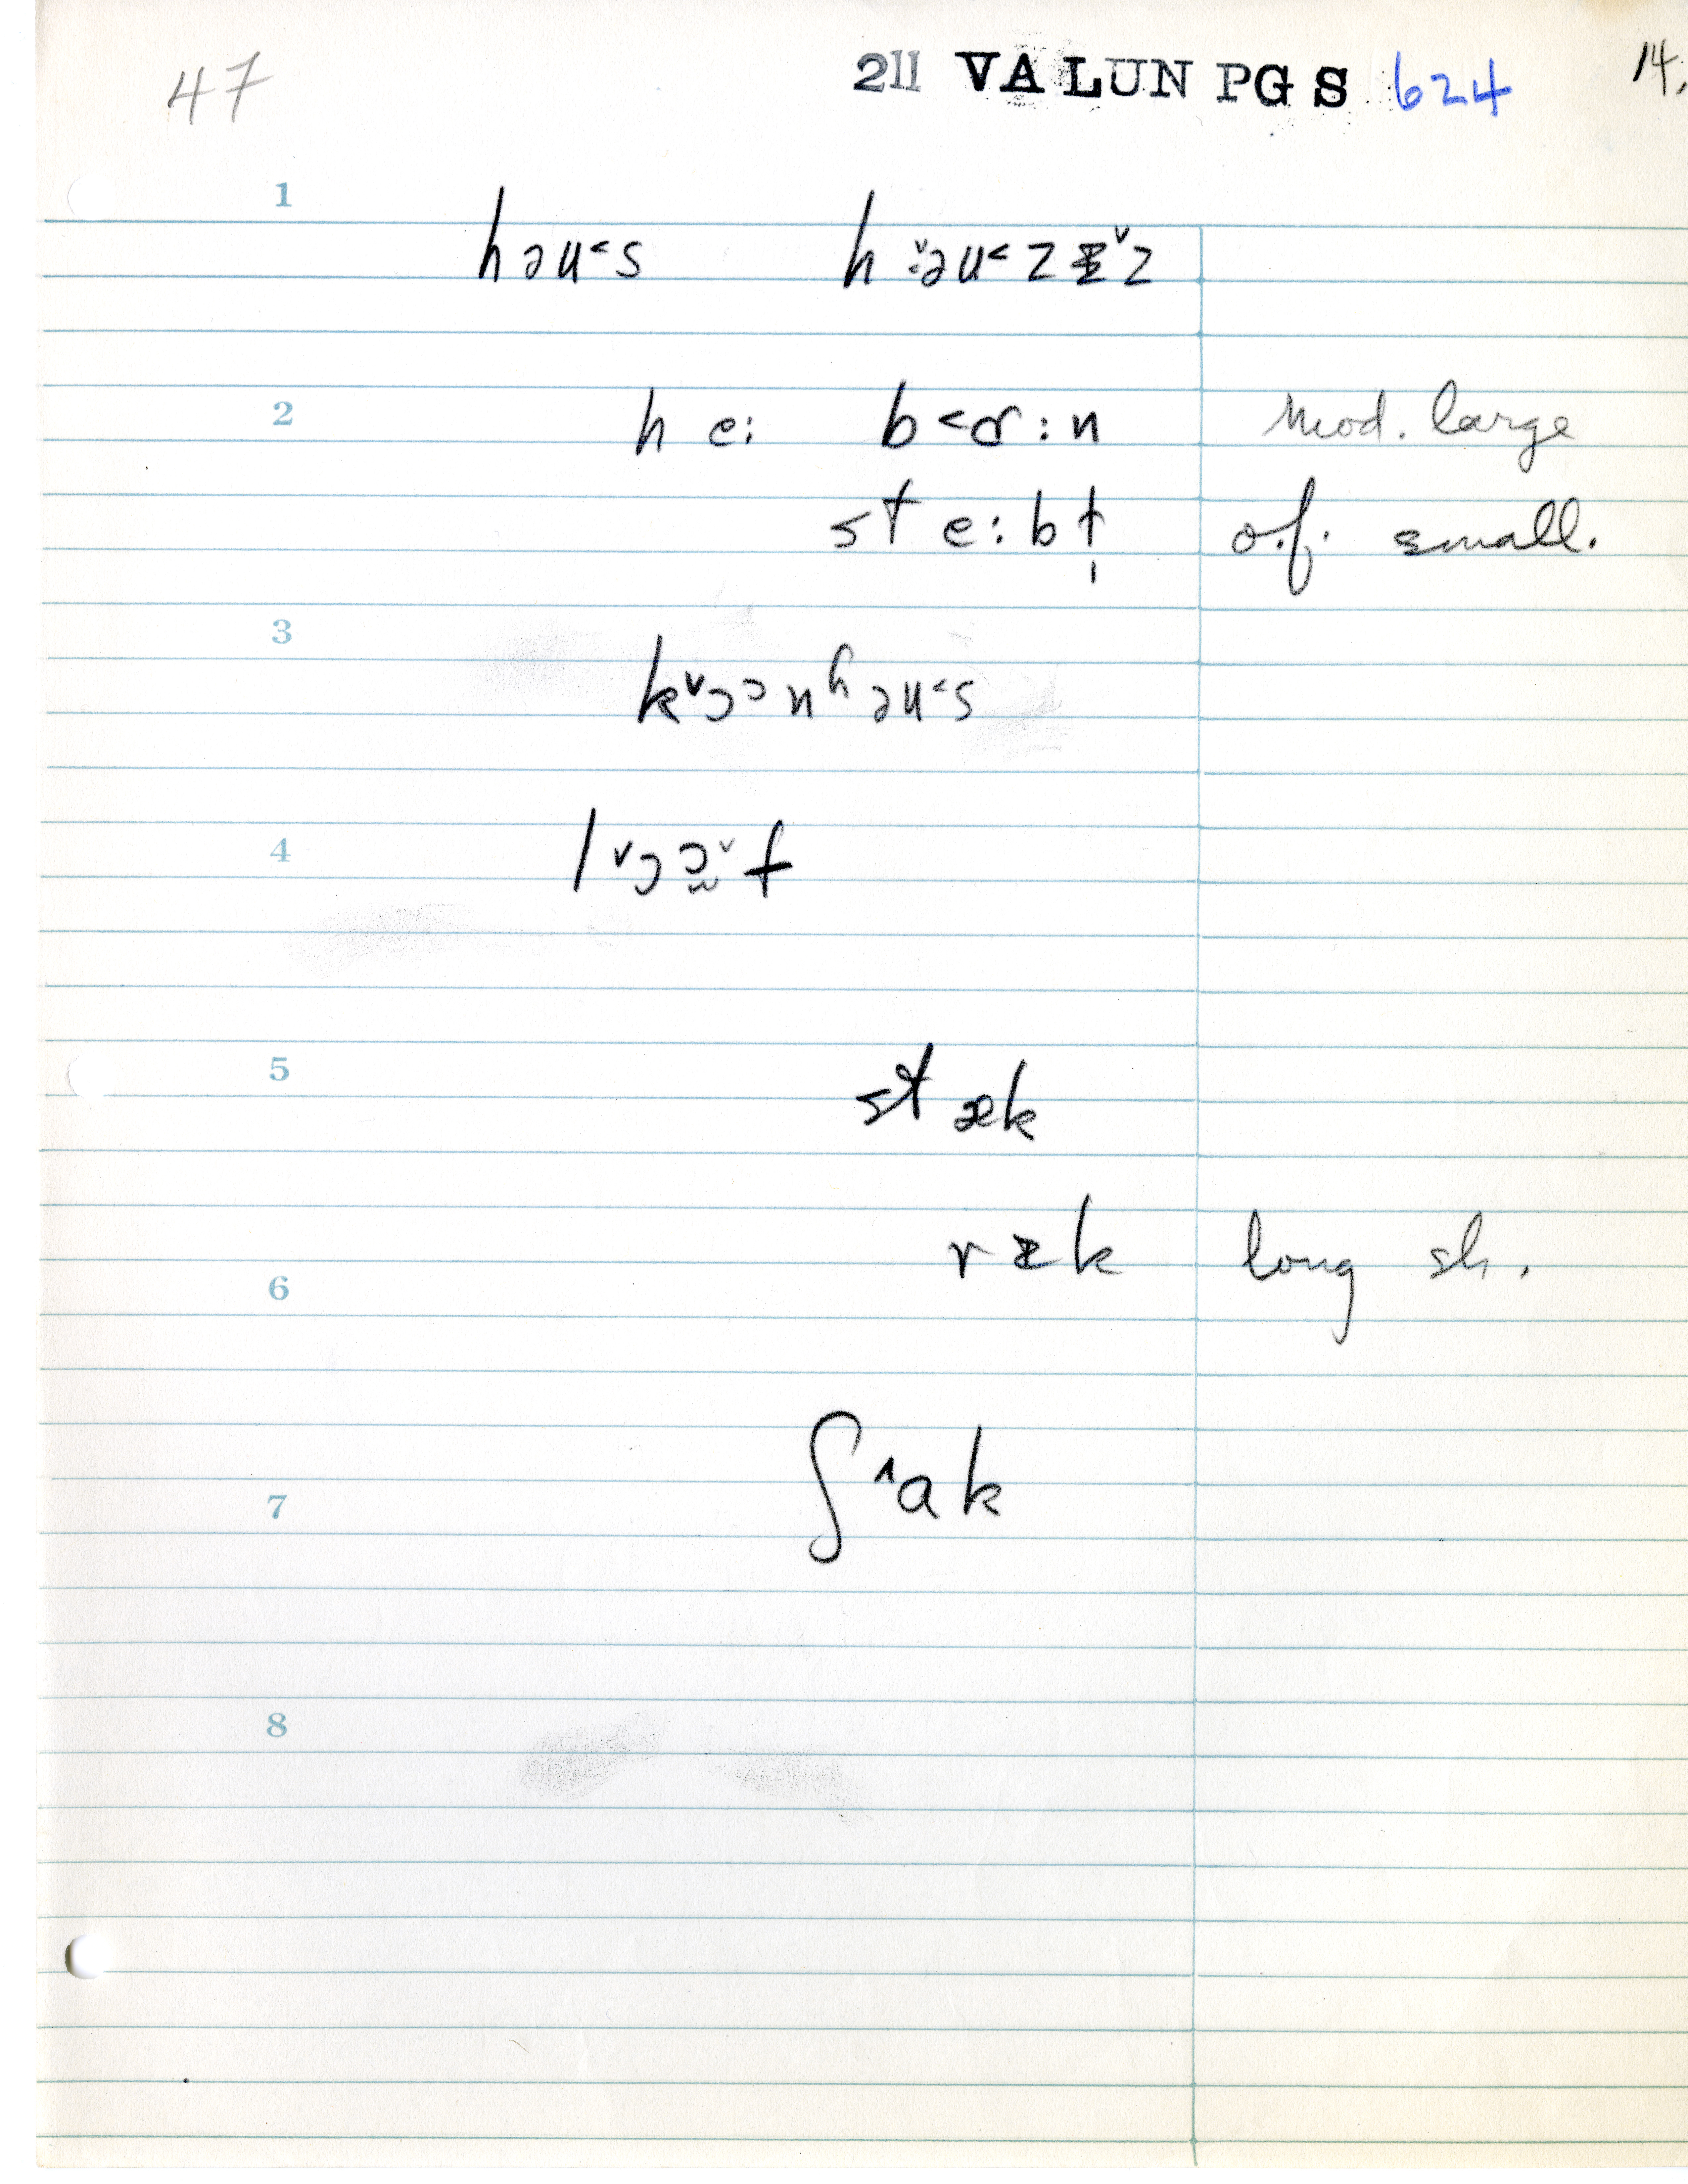 47 211 VALUN PGS 624 14.
1
həu˂s h ˇ:əu˂zᵻˇz
2 h e: b˂ɑr:n Mod. large
st e:bɫ̩ o.f. small.
3
kˇɔɔnʰəu˂s
4 lˇɔɔ̯ˇf
5
stæk
rᵻk long sh.
6
7 ʃ˄ak
8